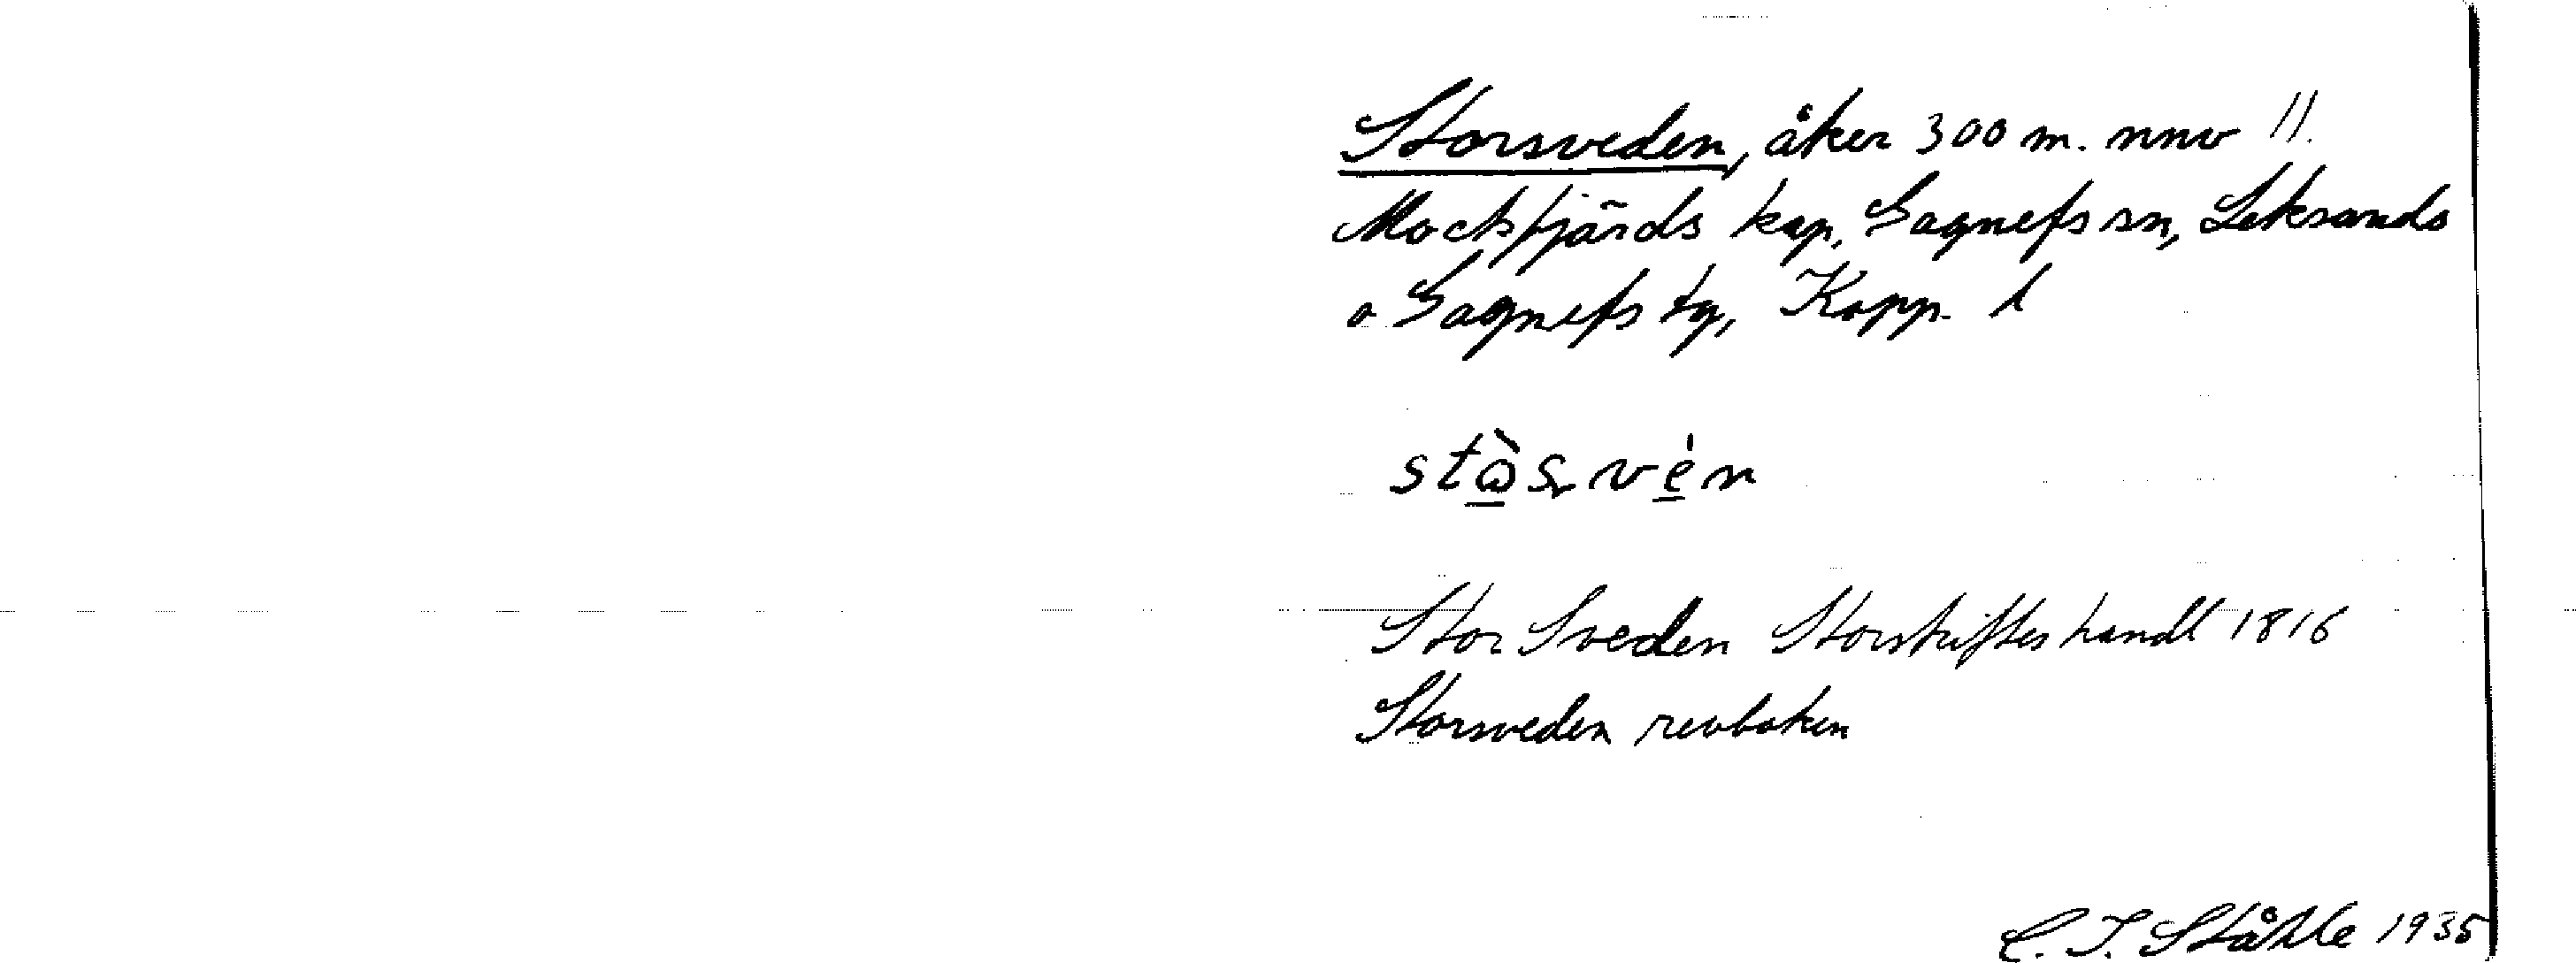 Storsveden, åker 300 m. nnv 11.
Mockfjärds kap, Gagnefs sn, Leksands
o Gagnefs tg, Kopp. l
Stor Sveden Storskifteshandl 1816
Storsveden revboken
C. I. Ståhle 1935